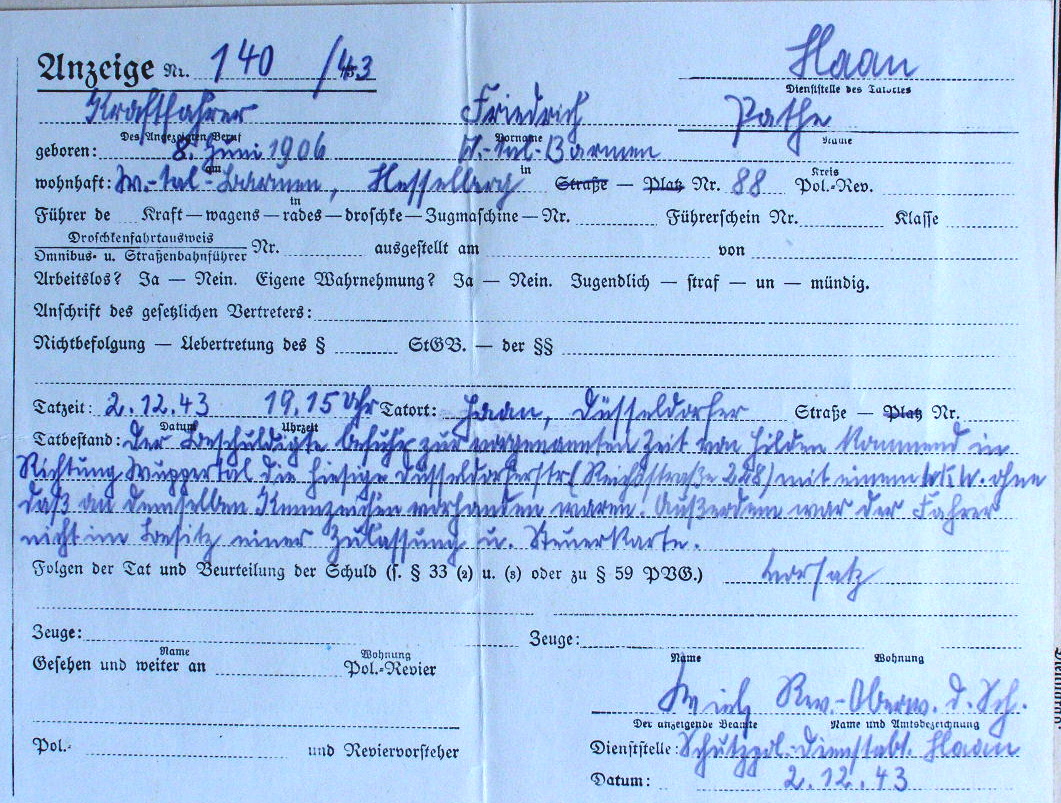 Anzeige Nr. 140 /43 Haan
Dienststelle des Tatortes
Kraftfahrer Friedrich Pathe
Des Angezeigten Beruf Vorname Name
geboren: 8. Juni 1906 W.-Tal-Barmen
am in Kreis
wohnhaft: W.-Tal-Barmen, Hesselberg Straße — Platz Nr. 88 Pol.-Rev.
in
Führer de Kraft — wagens — rades — droschke — Zugmaschine — Nr. Führerschein Nr. Klasse
Droschkenfahrtausweis
Omnibus- u. Straßenbahnführer Nr. ausgestellt am von
Arbeitslos? Ja — Nein. Eigene Wahrnehmung? Ja — Nein. Jugendlich — straf — un — mündig.
Anschrift des gesetzlichen Vertreters:
Nichtbefolgung — Uebertretung des § StGB. — der §§
Tatzeit: 2.12.43 19.15 Uhr Tatort: Haan, Düsseldorfer Straße — Platz Nr.
Datum Uhrzeit
Tatbestand: Der Beschuldigte befuhr zur vorgenannten Zeit von Hilden kommend in
Richtung Wuppertal die hiesige Düsseldorferstr. (Reichsstraße 228) mit einem ohne
daß an demselben Kennzeichen vorhanden waren. Außerdem war der Fahrer
nicht im Besitz einer Zulassung u. Steuerkarte.
Folgen der Tat und Beurteilung der Schuld (s. § 33 (2) u. (3) oder zu § 59 PVG.) Vorsatz
Zeuge: Zeuge:
Name Wohnung Name Wohnung
Gesehen und weiter an Pol.-Revier
Rev.-Oberw. d. Sch.
Der anzeigende Beamte Name und Amtsbezeichnung
Pol.- und Reviervorsteher Dienststelle: Schutzpol.-Dienstabt. Haan
Datum: 2.12.43